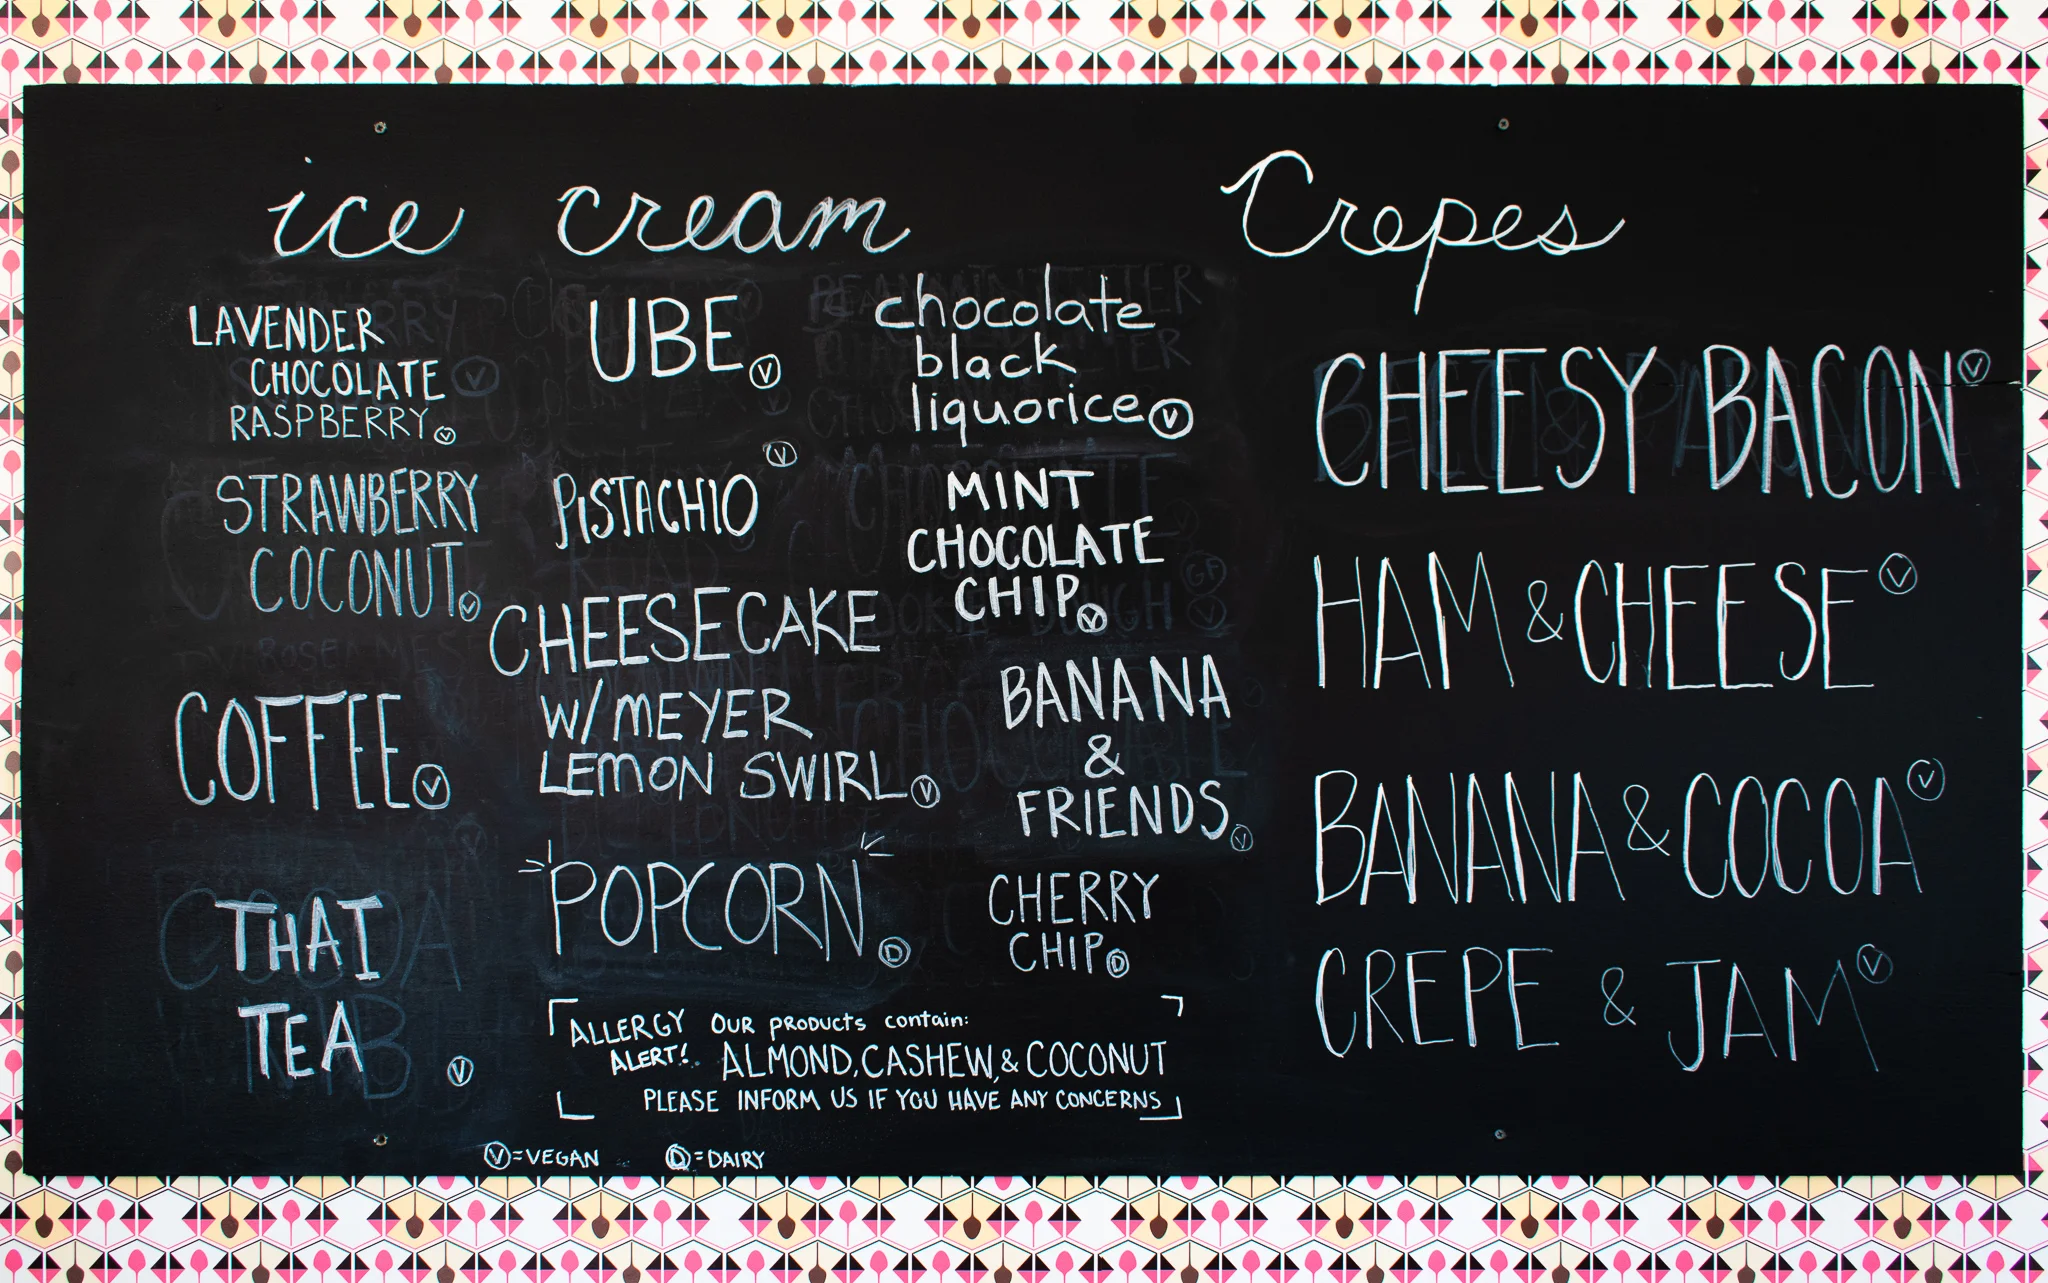 ice cream
LAVENDER
CHOCOLATE
RASPBERRY Ⓥ
STRAWBERRY
COCONUT Ⓥ
COFFEE Ⓥ
THAI
TEA Ⓥ
UBE Ⓥ
PISTACHIO Ⓥ
CHEESECAKE
W/ MEYER
LEMON SWIRL Ⓥ
POPCORN Ⓓ
chocolate
black
liquorice Ⓥ
MINT
CHOCOLATE
CHIP Ⓥ
BANANA
&
FRIENDS Ⓥ
CHERRY
CHIP Ⓓ
ALLERGY OUR PRODUCTS contain:
ALERT! ALMOND, CASHEW, & COCONUT
PLEASE INFORM US IF YOU HAVE ANY CONCERNS
Ⓥ=VEGAN Ⓓ=DAIRY
Crepes
CHEESY BACON Ⓥ
HAM & CHEESE Ⓥ
BANANA & COCOA Ⓥ
CREPE & JAM Ⓥ